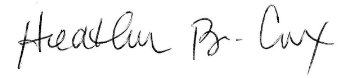 Heather B. Cox